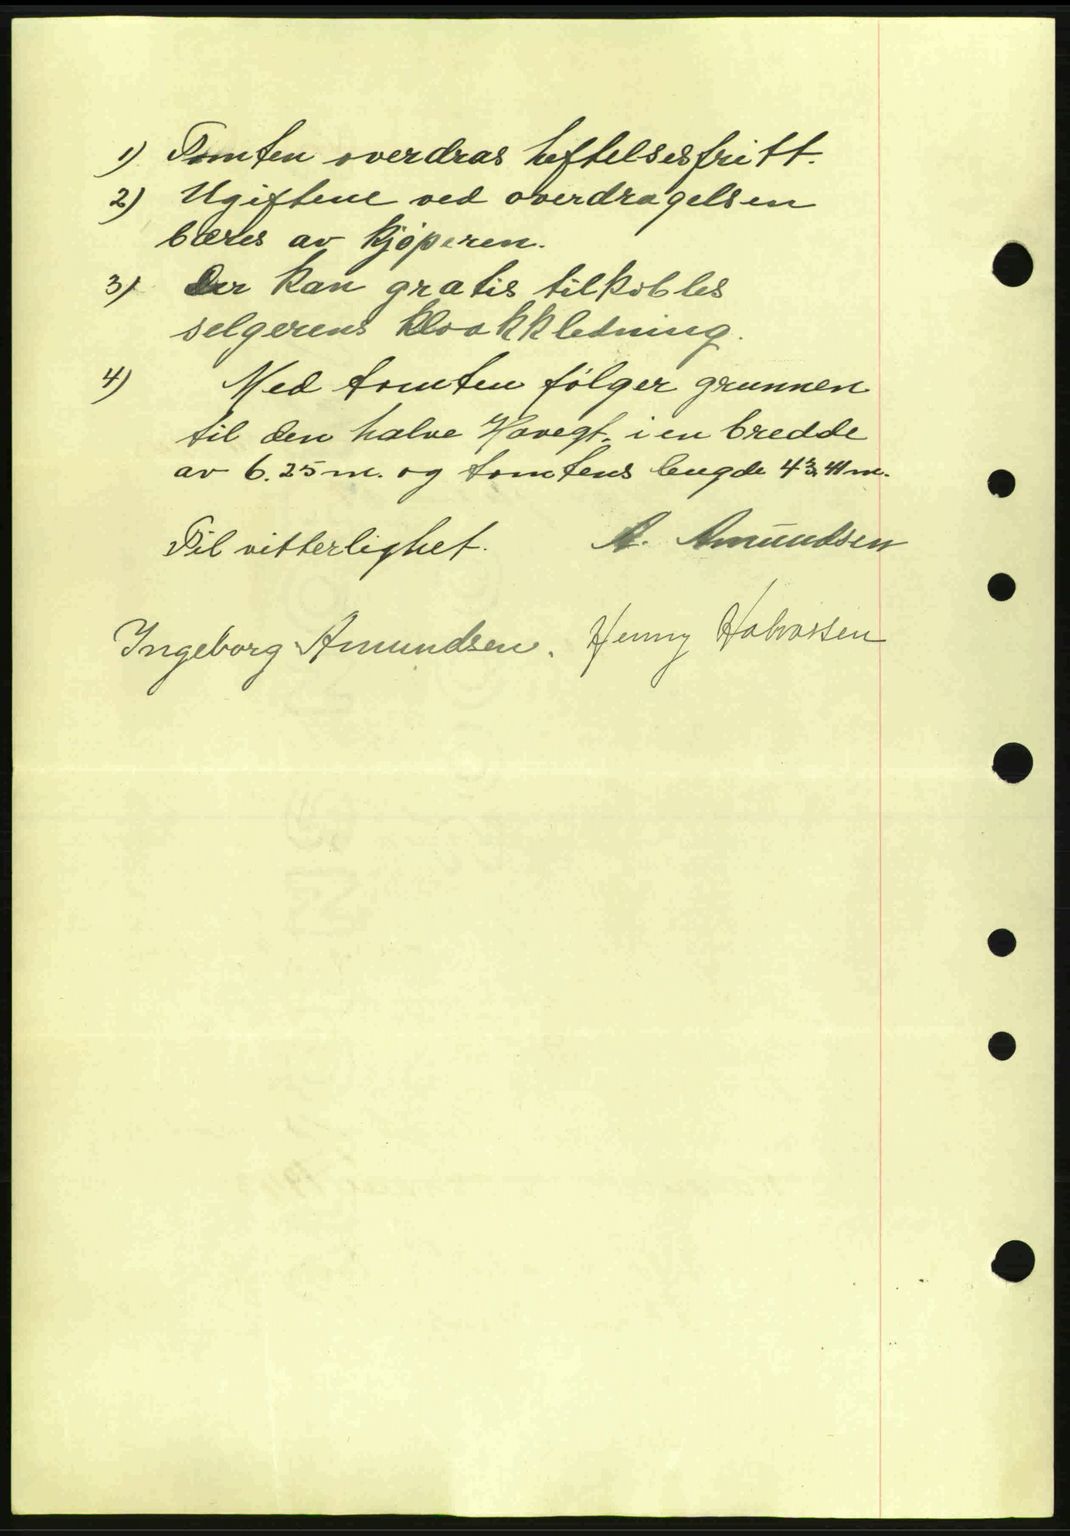 1) Tomten overdras heftelsesfritt.
2) Ugiftene ved overdragelsen
bæres av kjøperen.
3) Der kan gratis tilkobles
selgerens kloakkledning.
4) Med tomten følger grunnen
til den halve Havegt. i en bredde
av 6.25 m. og tomtens lengde 43,41 m.
Til vitterlighet. A. Amundsen
Ingeborg Amundsen. Henny Halvorsen